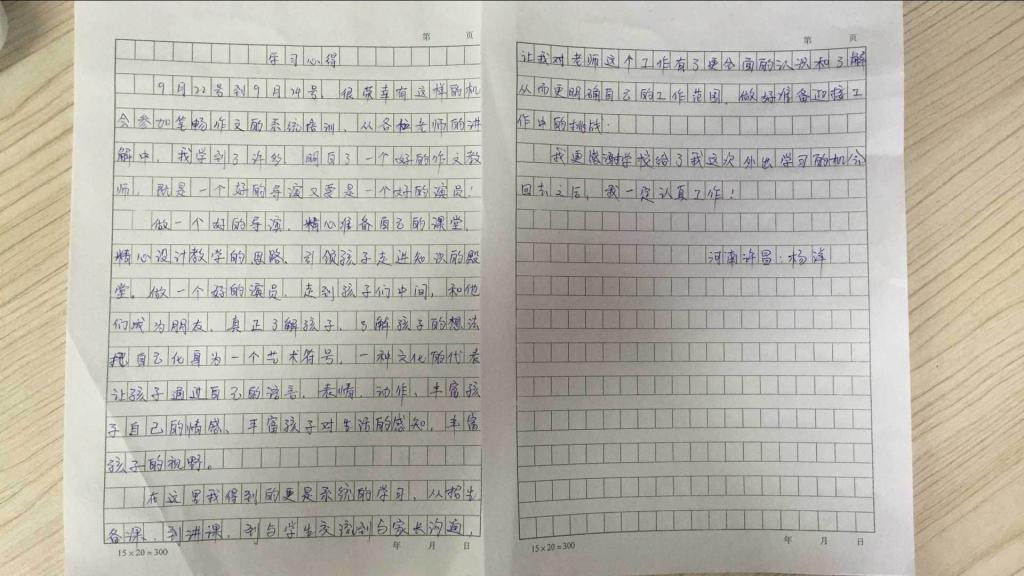 第 页
学习心得
9月22号到9月24号,很荣幸有这样的机
会参加笔畅作文的系统培训,从各位老师的讲
解中,我学到了许多,明白了一个好的作文教
师,既是一个好的导演又要是一个好的演员!
做一个好的导演,精心准备自己的课堂,
精心设计教学的思路,引领孩子走进知识的殿
堂。做一个好的演员,走到孩子们中间,和他
们成为朋友,真正了解孩子,了解孩子的想法
把自己化身为一个艺术符号,一种文化的代表
让孩子通过自己的语言、表情、动作、丰富孩
子自己的情感、丰富孩子对生活的感知,丰富
孩子的视野。
在这里我得到的更是系统的学习,从招生
备课,到讲课,到与学生交流到与家长沟通,
15×20=300 年 月 日
第 页
让我对老师这个工作有了更全面的认识和了解
从而更明确自己的工作范围,做好准备迎接工
作中的挑战.
我更感谢学校给了我这次外出学习的机会
回去之后,我一定认真工作!
河南许昌:杨洋
15×20=300 年 月 日